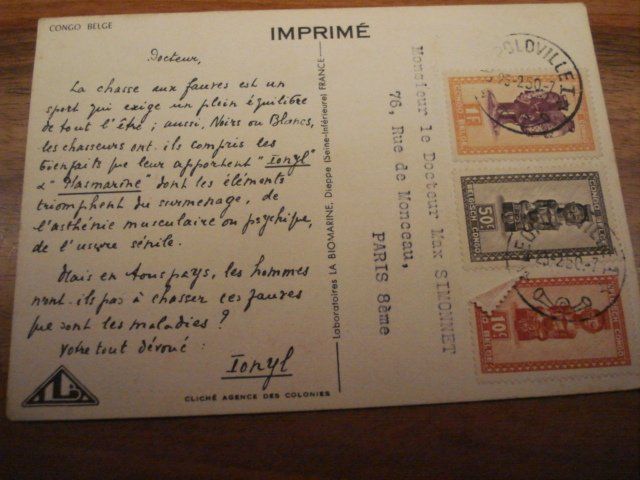 CONGO BELGE
IMPRIMÉ
Docteur,
La chasse aux fauves est un
sport qui exige un plein équilibre
de tout l'être ; aussi, Noirs ou Blancs,
les chasseurs ont-ils compris les
bienfaits que leur apportent "Ionyl"
& "Plasmarine" dont les éléments
triomphent du surmenage, de
l'asthénie musculaire ou psychique,
de l'usure sénile.
Mais en tous pays, les hommes
n'ont-ils pas à chasser ces fauves
que sont les maladies ?
Votre tout dévoué :
Ionyl
CLICHÉ AGENCE DES COLONIES
Laboratoires LA BIOMARINE, Dieppe (Seine-Inférieure) FRANCE
Monsieur le Docteur Max SIMONNET
76, Rue de Monceau,
PARIS 8ème
OLDVILLE 1
1F
50c
BELGISCH CONGO
CONGO BELGE
10c